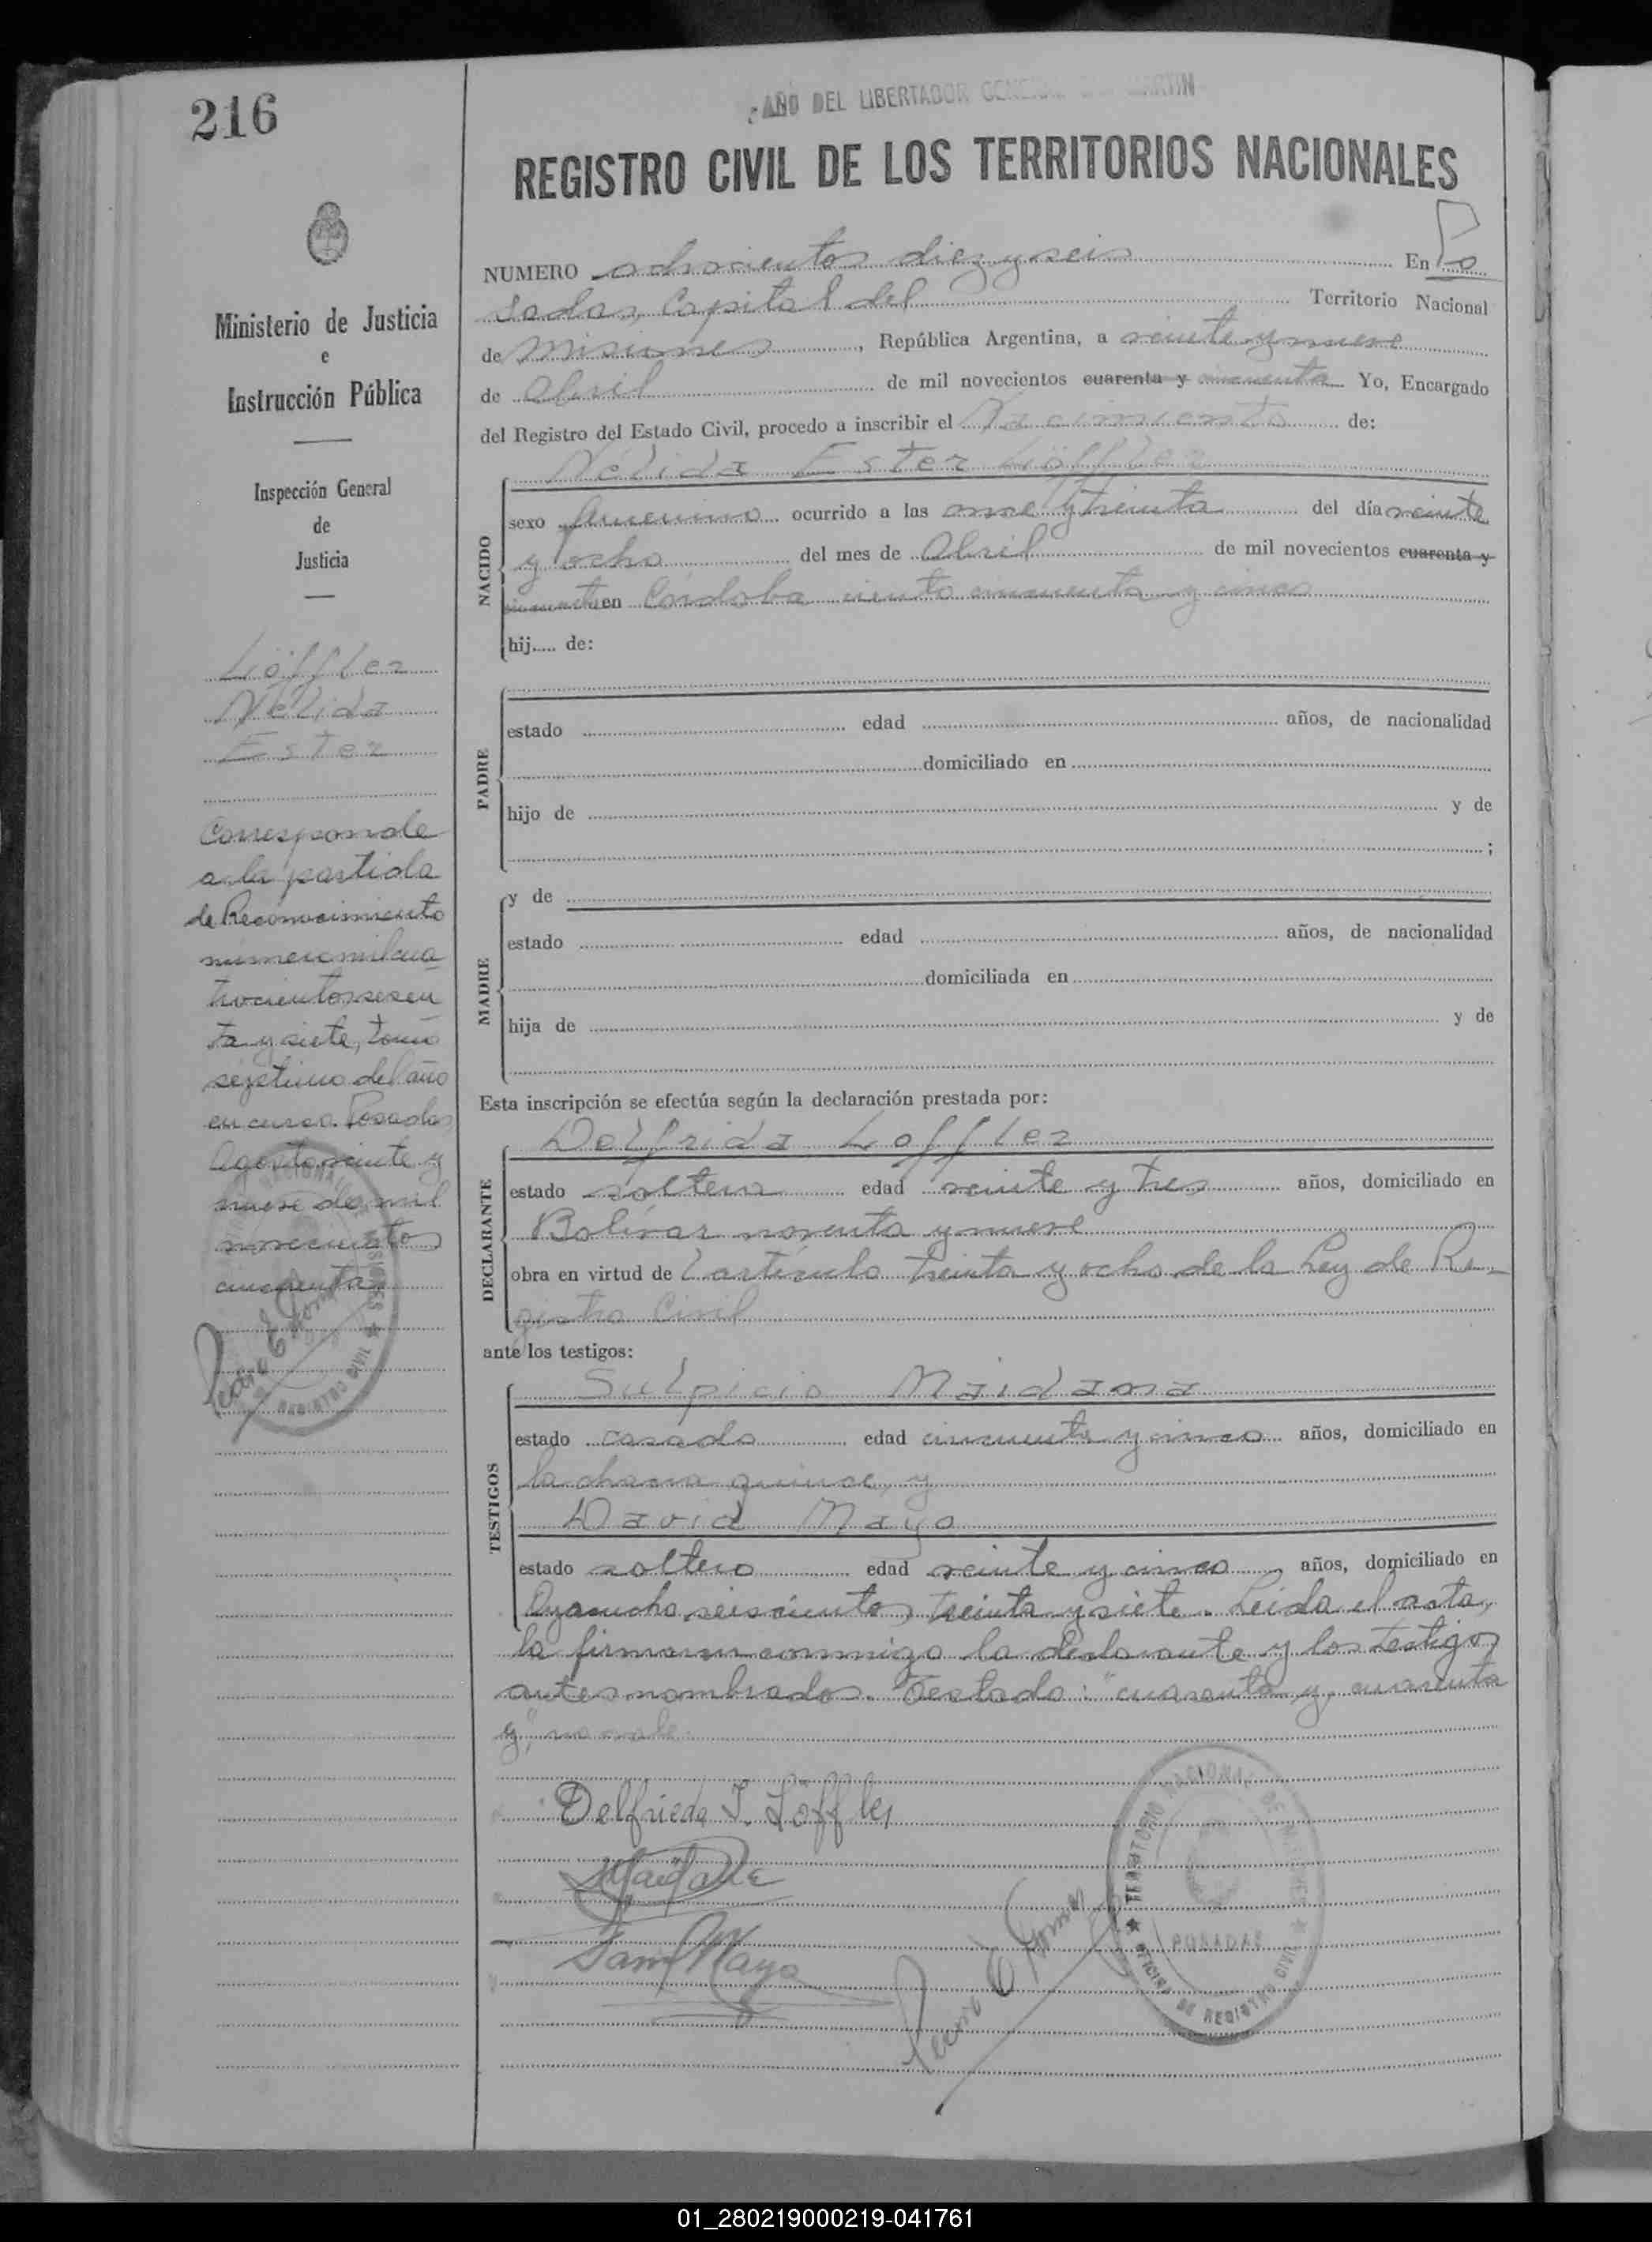 216
AÑO DEL LIBERTADOR GENERAL SAN MARTIN
REGISTRO CIVIL DE LOS TERRITORIOS NACIONALES
Ministerio de Justicia
e
Instrucción Pública
Inspección General
de
Justicia
Löffler
Nélida
Ester
Corresponde
a la partida
de Reconocimiento
número mil cua
trocientos sesen
ta y siete, tomo
séptimo del año
en curso. Posadas
Agosto veinte y
nueve de mil
novecientos
cincuenta
NUMERO ochocientos diez y seis En Po
sadas, Capital del Territorio Nacional
de Misiones, República Argentina, a veinte y nueve
de Abril de mil novecientos cuarenta y cincuenta Yo, Encargado
del Registro del Estado Civil, procedo a inscribir el Nacimiento de:
Nélida Ester Löffler
NACIDO
sexo femenino ocurrido a las once y treinta del día veinte
y ocho del mes de Abril de mil novecientos cuarenta y
cincuenta en Córdoba ciento cincuenta y cinco
hij..... de:
PADRE
estado edad años, de nacionalidad
domiciliado en
hijo de y de
;
MADRE
y de
estado edad años, de nacionalidad
domiciliada en
hija de y de
Esta inscripción se efectúa según la declaración prestada por:
DECLARANTE
Delfrida Loffler
estado soltera edad veinte y tres años, domiciliado en
Bolívar noventa y nueve
obra en virtud de l artículo treinta y ocho de la Ley de Re-
gistro Civil
ante los testigos:
TESTIGOS
Sulpicio Maidana
estado casado edad cincuenta y cinco años, domiciliado en
la chacra quince, y
David Mayo
estado soltero edad veinte y cinco años, domiciliado en
Ayacucho seiscientos treinta y siete. Leida el acta,
la firman conmigo la declarante y los testigos
antes nombrados. Testado: "cuarenta y, cuarenta
y", no vale.
Delfrieda I. Löffler
TERRITORIO NACIONAL DE MISIONES
POSADAS
OFICINA DE REGISTRO CIVIL
01_280219000219-041761